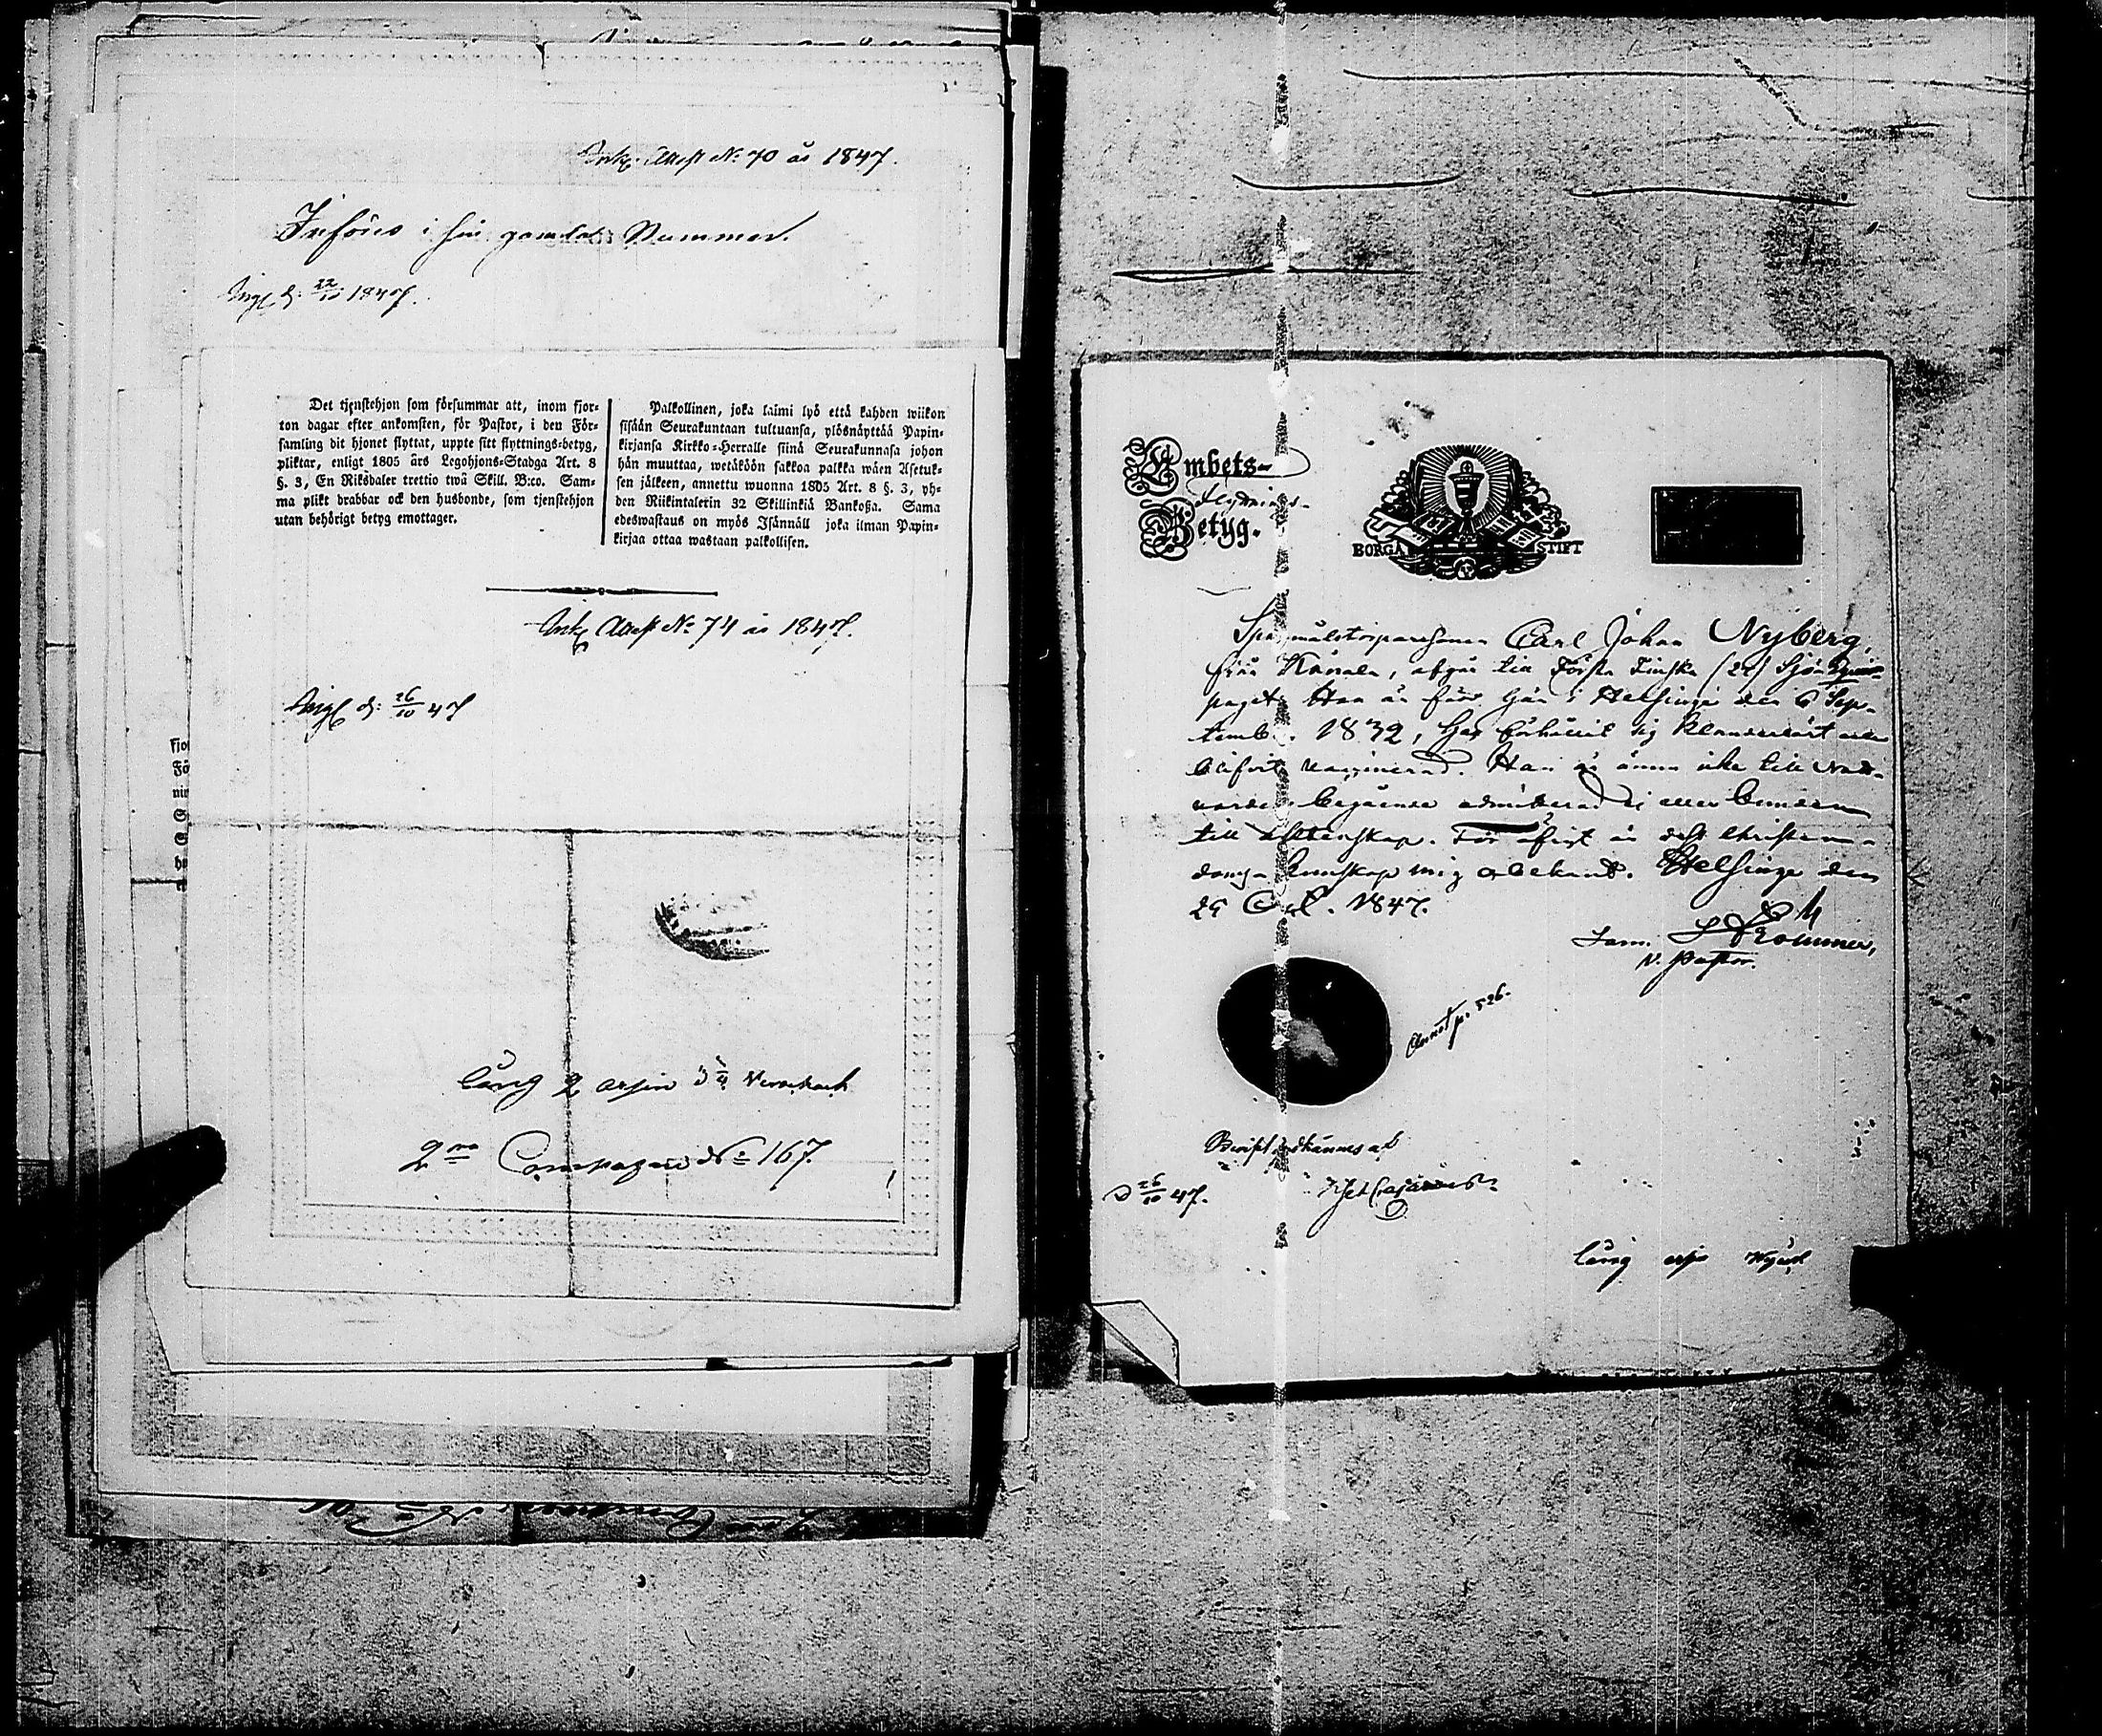 Ink. Attest No 70 år 1847.
Införes i sin gamla Nummer.
Ingl. d. 22/10 1847.
Det tjenstehjon som försummar att, inom fjor-
ton dagar efter ankomsten, för Pastor, i den För-
samling dit hjonet flyttat, uppte sitt flyttnings-betyg,
pliktar, enligt 1805 års Legohjons-Stadga Art. 8
§. 3, En Riksdaler trettio twå Skill. B:co. Sam-
ma plikt drabbar ock den husbonde, som tjenstehjon
utan behörigt betyg emottager.
Palkollinen, joka laimi lyö että kahden wiikon
sisään Seurakuntaan tultuansa, ylösnäyttää Papin-
kirjansa Kirkko-Herralle siinä Seurakunnasa johon
hän muuttaa, wetäköön sakkoa palkka wäen Asetuk-
sen jälkeen, annettu wuonna 1805 Art. 8 §. 3, yh-
den Riikintalerin 32 Skillinkiä Bankoßa. Sama
edeswastaus on myös Isännäll joka ilman Papin-
kirjaa ottaa wastaan palkollisen.
Ink. Attest No 74 år 1847.
Ingl. d. 26/10 47
lång 2 arsin 3 3/4 Werschock
2ra Compagni No 167.
Embets-
flyttnings-
Betyg.
BORGÅ STIFT
Carl Johan Nyberg,
från, afgår till Första Finska Sjö Equi-
paget. Han är född här i Helsinge den 6 Sep-
temb. 1832, har förhållit sig klanderlöst och
blifvit vaccinerad. Han är ännu icke till Natt-
vardens begående admitterad ej eller bunden
till äktenskap. För öfrigt är dess Christen-
doms kunskap mig obekant. Helsinge den
25 Oct. 1847.
V. Pastor.
Annot p. 526.
d 26/10 47.
lång arsi